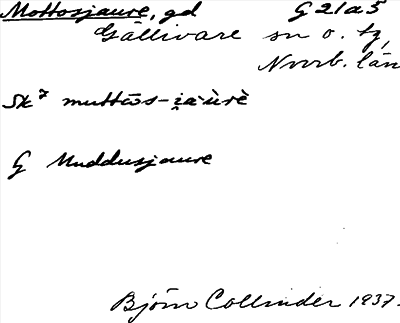 Mottosjaure, gd G 21a5
Gällivare sn o. tg,
Norrb. län
Sk⁷ muttōs-i̯a̭ùrè
G Muddusjaure
Björn Collinder 1937.